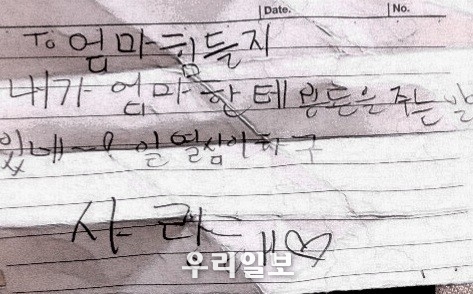 Date. No.
To 엄마 힘들지
내가 엄마한테 용돈을 주는 날
있네~? 일 열심히 하구
사라
우리일보